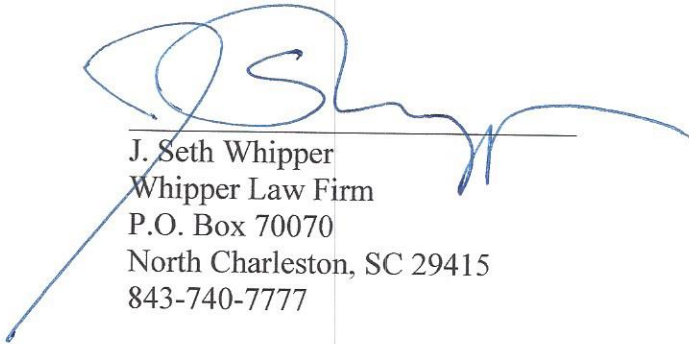 J. Seth Whipper
Whipper Law Firm
P.O. Box 70070
North Charleston, SC 29415
843-740-7777